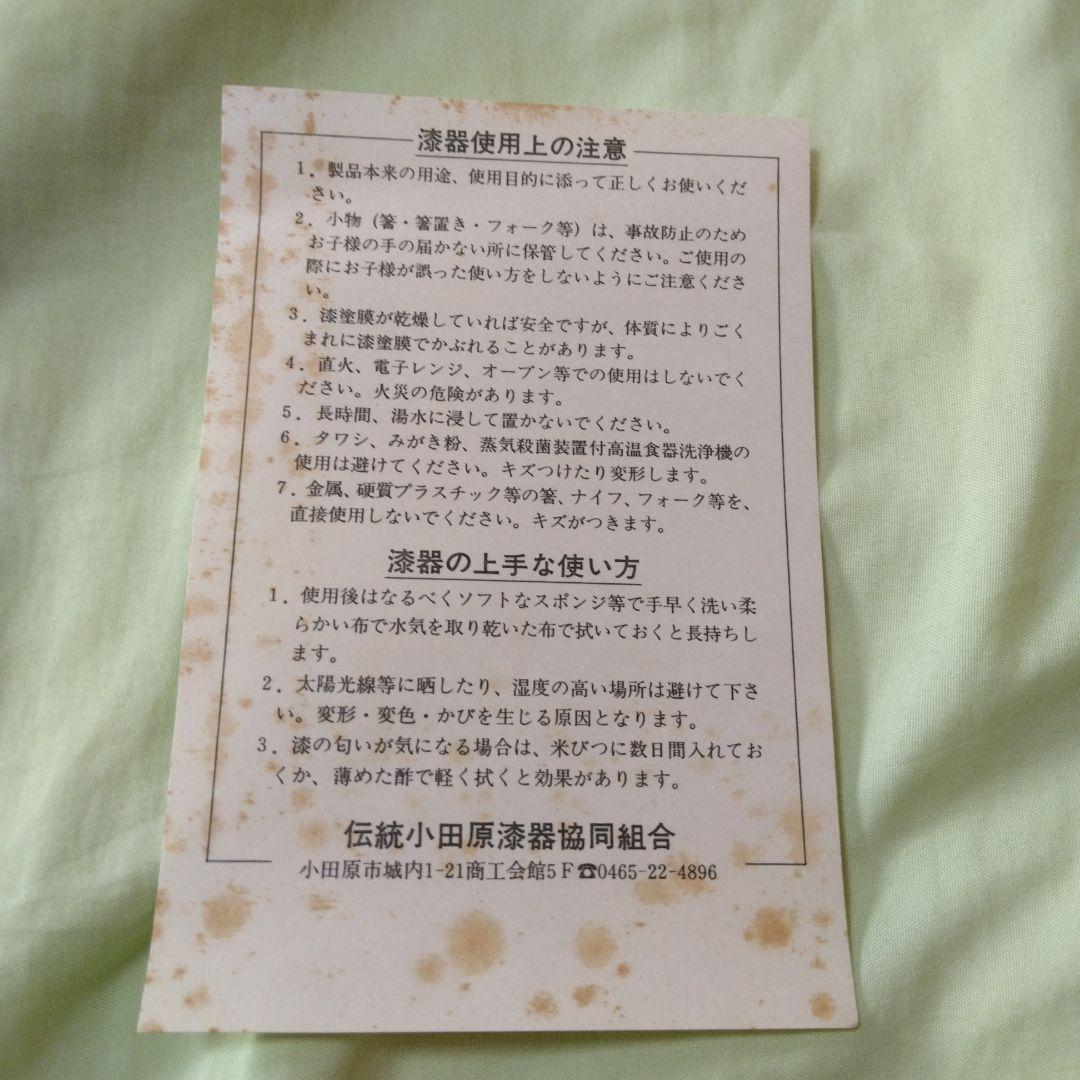 漆器使用上の注意
1．製品本来の用途、使用目的に添って正しくお使いくだ
さい。
2．小物（箸・箸置き・フォーク等）は、事故防止のため
お子様の手の届かない所に保管してください。ご使用の
際にお子様が誤った使い方をしないようにご注意くださ
い。
3．漆塗膜が乾燥していれば安全ですが、体質によりごく
まれに漆塗膜でかぶれることがあります。
4．直火、電子レンジ、オーブン等での使用はしないでく
ださい。火災の危険があります。
5．長時間、湯水に浸して置かないでください。
6．タワシ、みがき粉、蒸気殺菌装置付高温食器洗浄機の
使用は避けてください。キズつけたり変形します。
7．金属、硬質プラスチック等の箸、ナイフ、フォーク等を、
直接使用しないでください。キズがつきます。
漆器の上手な使い方
1．使用後はなるべくソフトなスポンジ等で手早く洗い柔
らかい布で水気を取り乾いた布で拭いておくと長持ちし
ます。
2．太陽光線等に晒したり、湿度の高い場所は避けて下さ
い。変形・変色・かびを生じる原因となります。
3．漆の匂いが気になる場合は、米びつに数日間入れてお
くか、薄めた酢で軽く拭くと効果があります。
伝統小田原漆器協同組合
小田原市城内1-21商工会館5F☎0465-22-4896